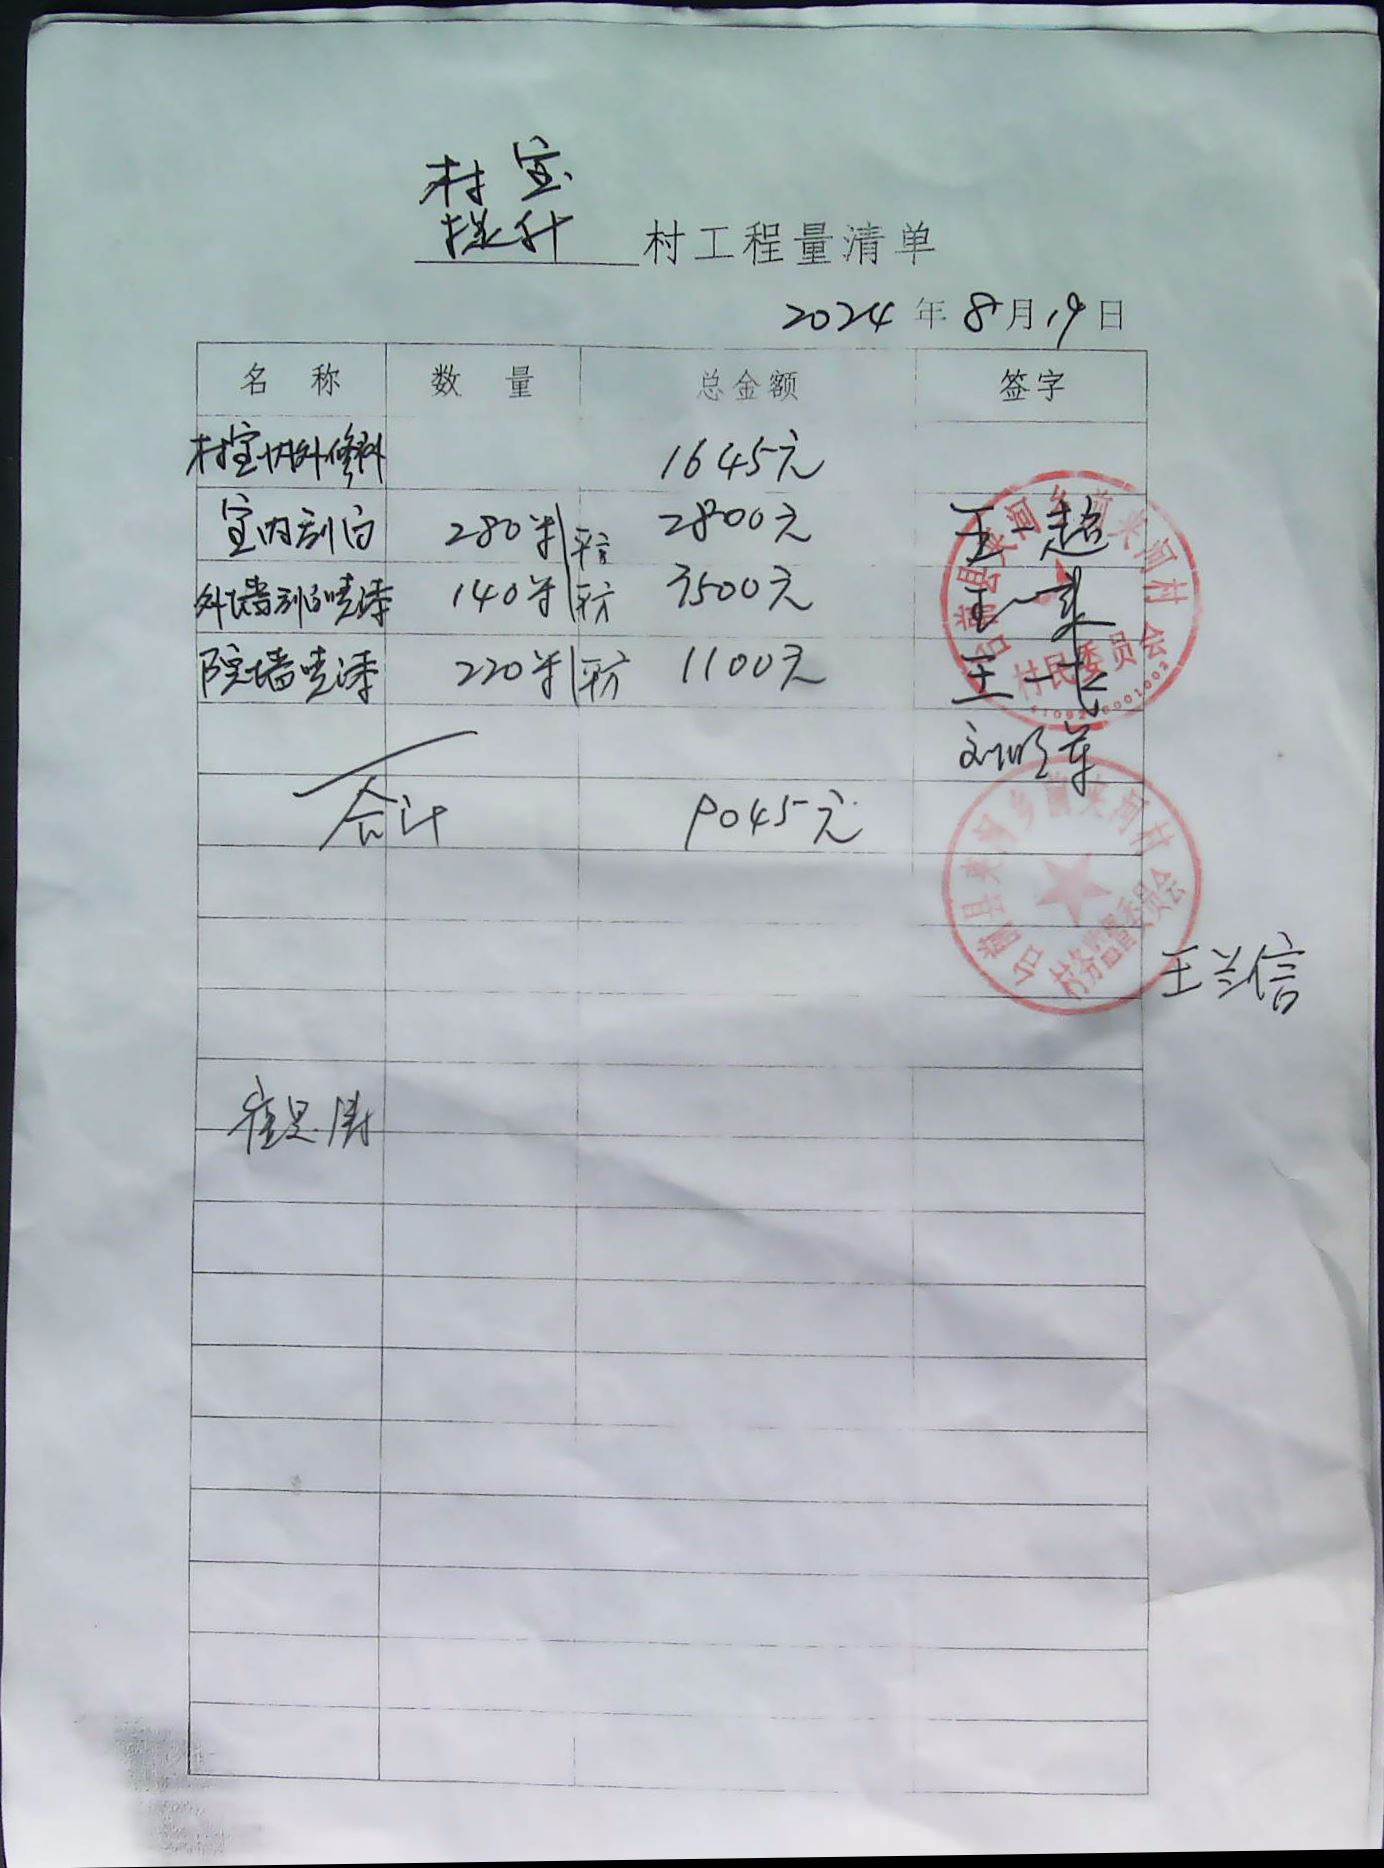 村室
提升 村工程量清单
2024年8月19日
名称 数量 总金额 签字
村室内外修料 1645元
室内刮白 280米/平方 2800元 王一超
外墙刮白喷漆 140米/平方 3500元 王一来
院墙喷漆 220米/平方 1100元 王一民
刘明军
合计 9045元
王兰信
台前县夹河乡前夹河村
村民委员会
台前县夹河乡前夹河村
村务监督委员会